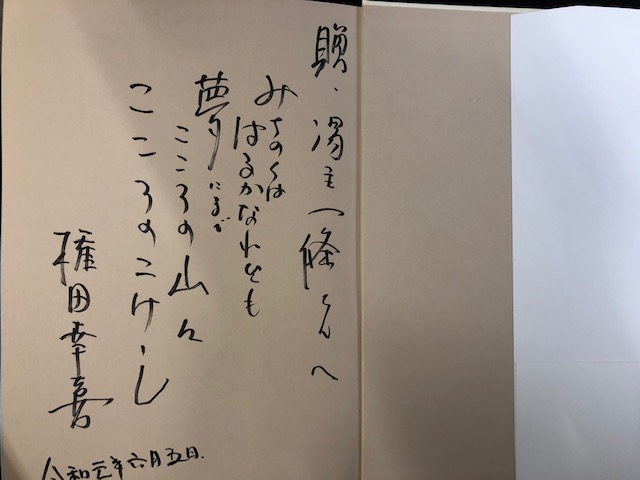 贈・湯主一條さんへ
みちのくは
はるかなれども
夢にまで
こころの山々
こころのこけし
権田幸喜
令和元年六月五日.